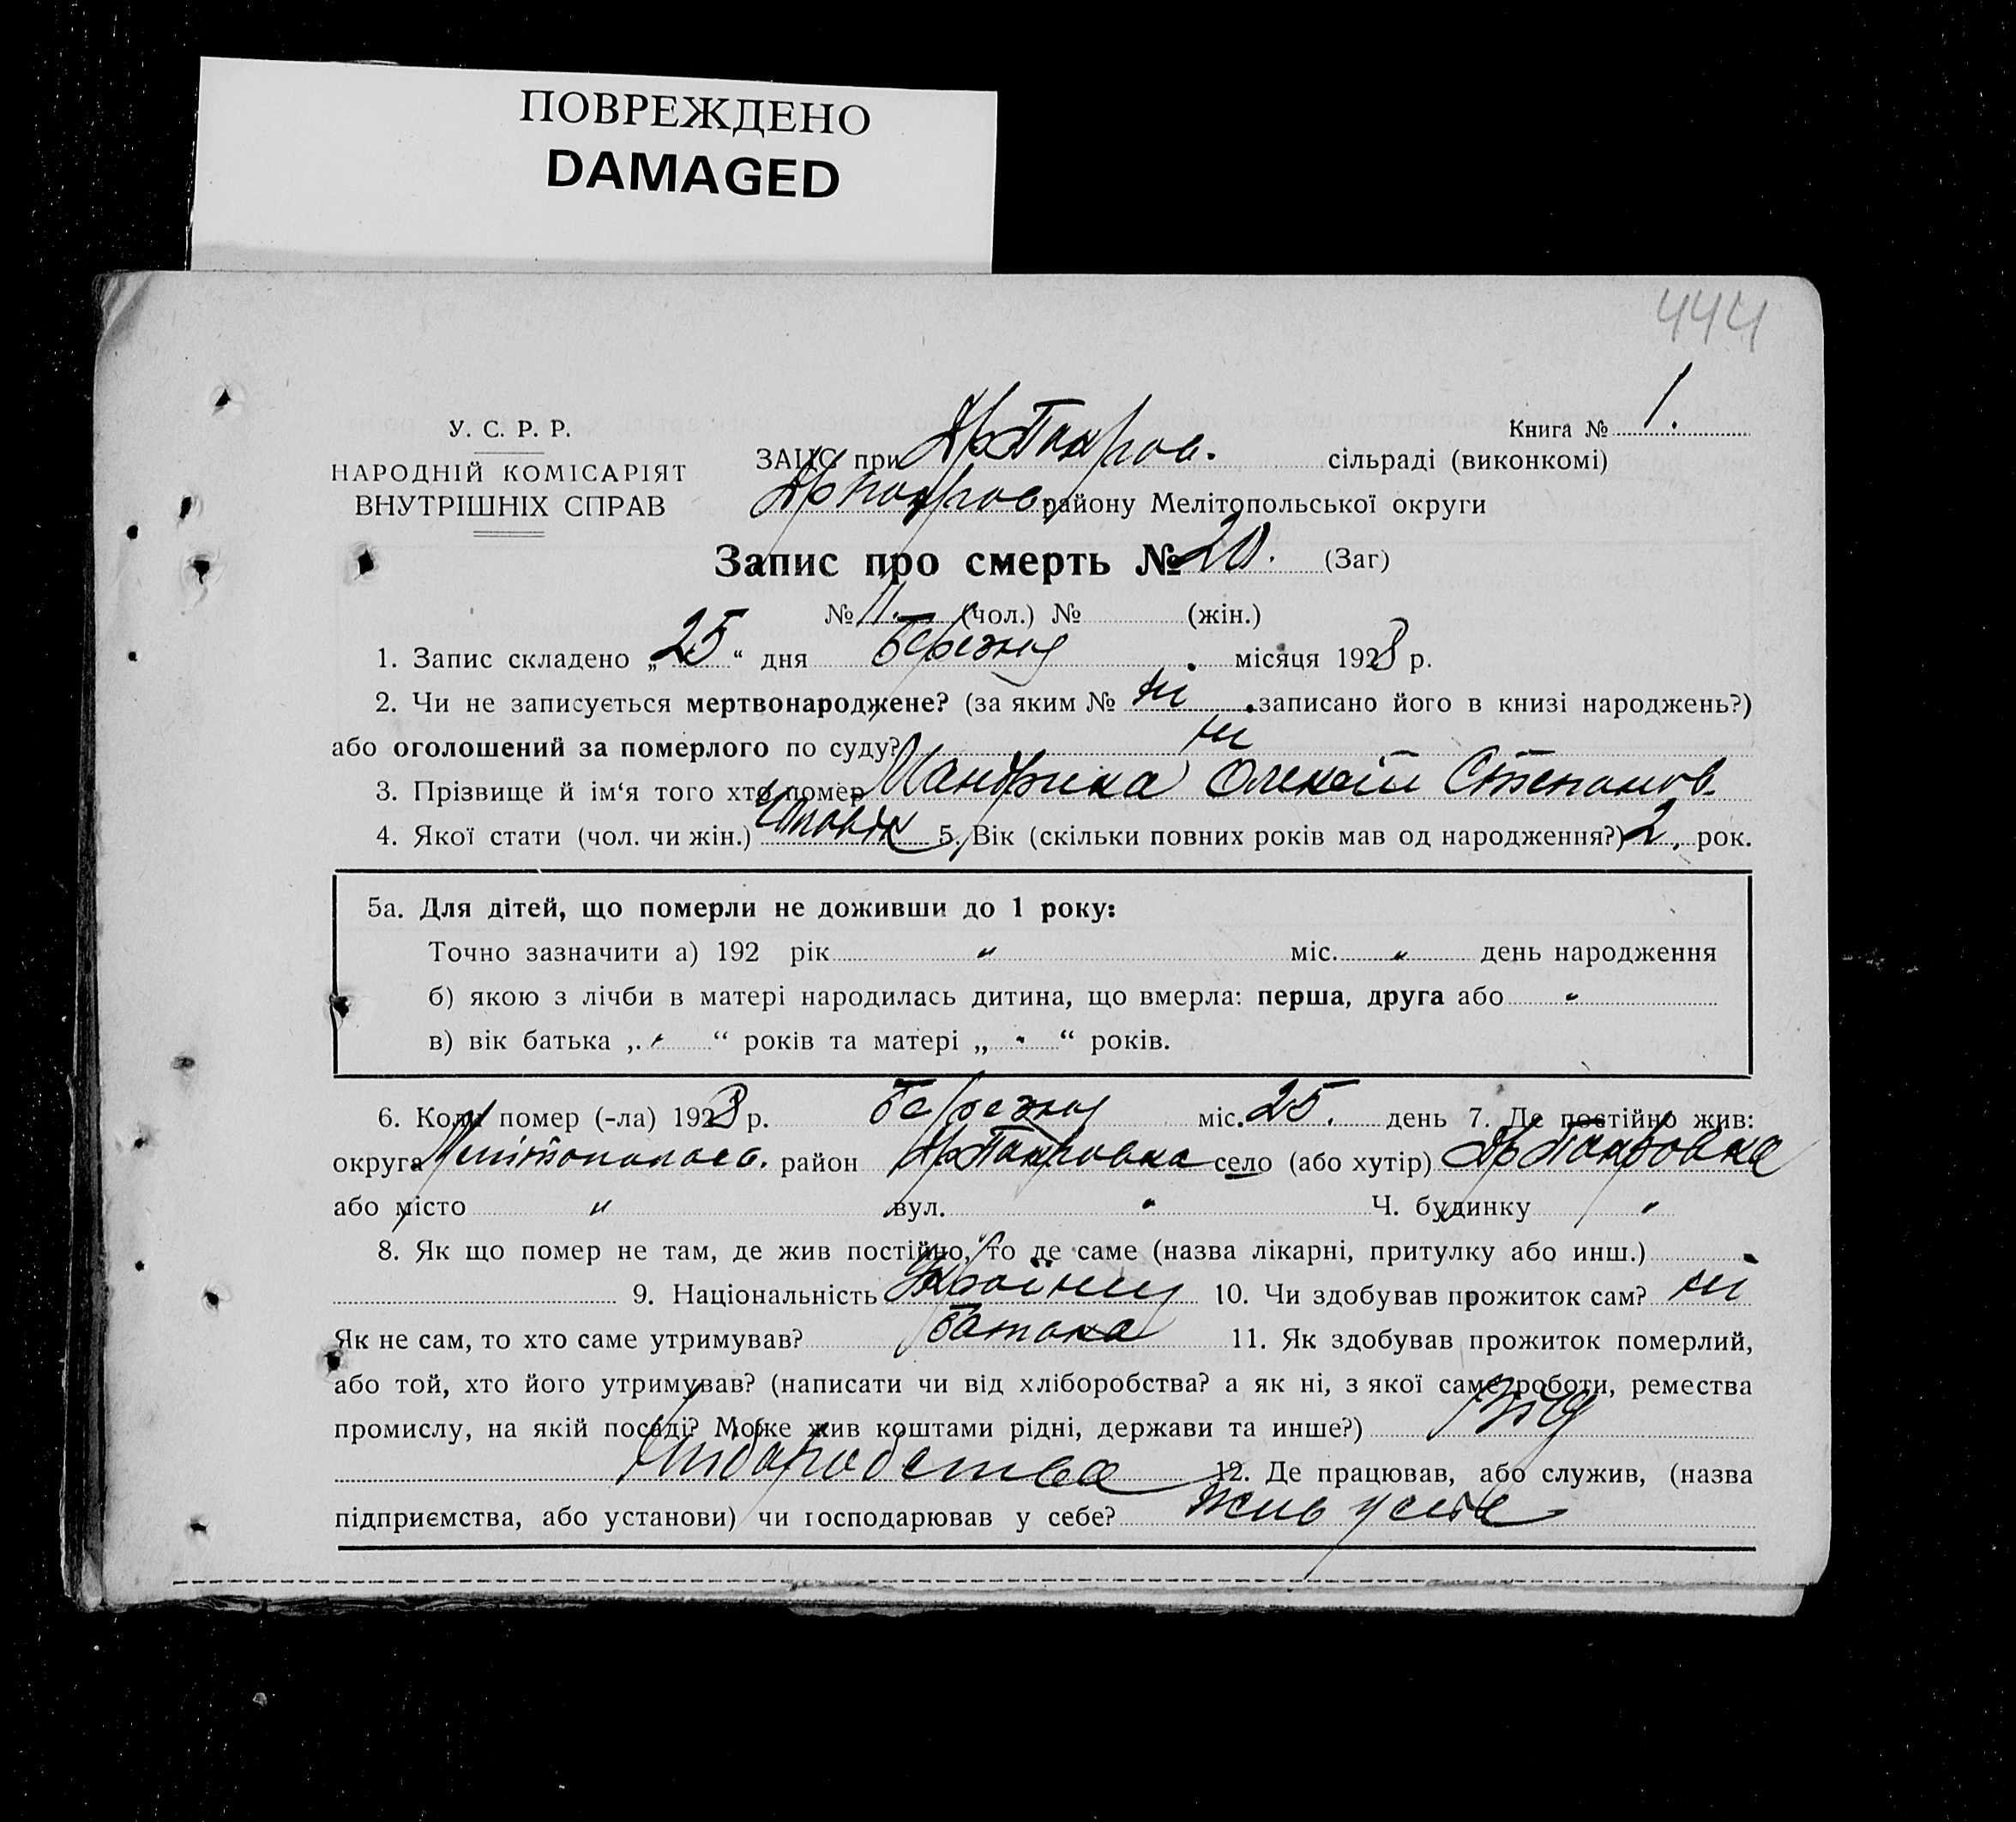 ПОВРЕЖДЕНО
DAMAGED
444
Книга № 1.
У. С. Р. Р.
НАРОДНІЙ КОМІСАРІЯТ
ВНУТРІШНІХ СПРАВ
ЗАЦС при НрПокров. сільраді (виконкомі)
НрПокров. району Мелітопольської округи
Запис про смерть № 20. (Заг)
№ 11. (чол.) № (жін.)
1. Запис складено „25“ дня Березня місяця 1928 р.
2. Чи не записується мертвонароджене? (за яким № ні записано його в книзі народжень?)
або оголошений за померлого по суду? ні
3. Прізвище й ім‘я того хто помер Мандрика Олексій Степанов.
4. Якої стати (чол. чи жін.) 5. Вік (скільки повних років мав од народження?) 2. рок.
5а. Для дітей, що померли не доживши до 1 року:
Точно зазначити а) 192 рік " міс. " день народження
б) якою з лічби в матері народилась дитина, що вмерла: перша, друга або "
в) вік батька „ " “ років та матері „ " “ років.
6. Коли помер (-ла) 1928 р. Березня міс. 25. день 7. Де постійно жив:
округа район НрПокровка село (або хутір) НрПокровка
або місто " вул. " Ч. будинку "
8. Як що помер не там, де жив постійно, то де саме (назва лікарні, притулку або инш.)
9. Національність 10. Чи здобував прожиток сам? ні
Як не сам, то хто саме утримував? Батько 11. Як здобував прожиток померлий,
або той, хто його утримував? (написати чи від хліборобства? а як ні, з якої саме роботи, ремества
промислу, на якій посаді? Може жив коштами рідні, держави та инше?) Від
Хліборобства 12. Де працював, або служив, (назва
підприємства, або установи) чи господарював у себе? жив у себе